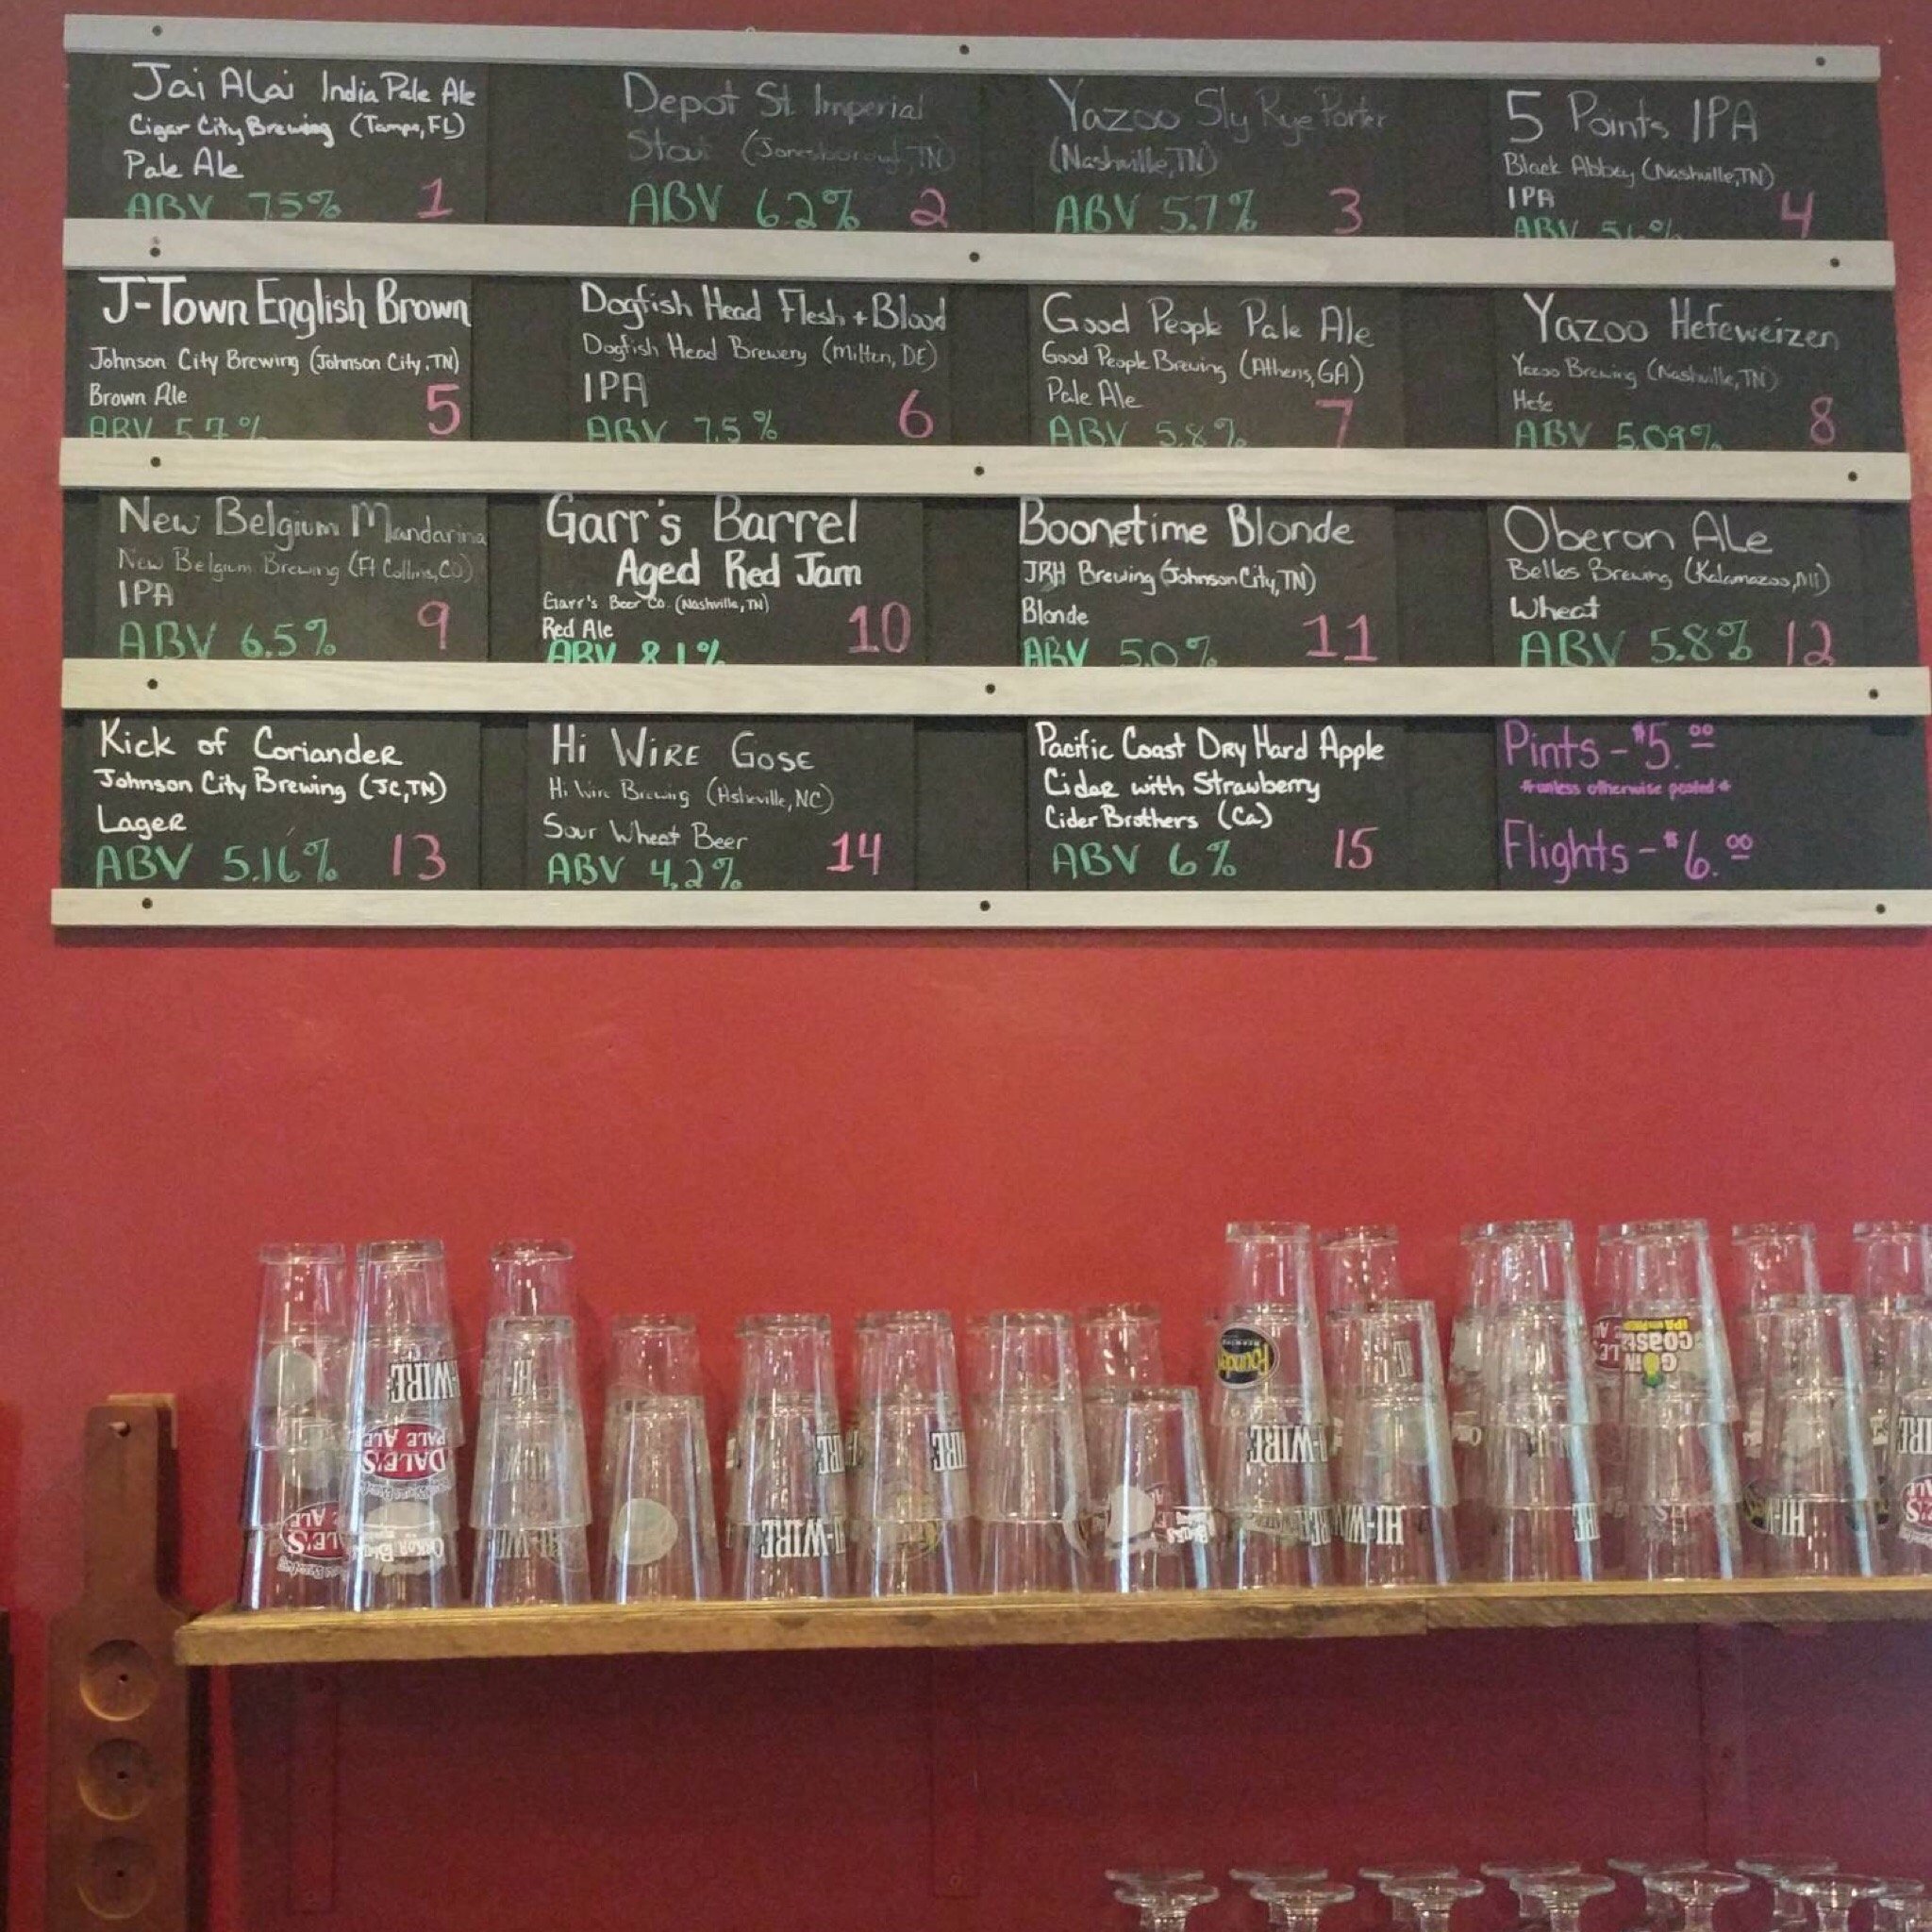 Jai Alai India Pale Ale
Cigar City Brewing (Tampa, FL)
Pale Ale
ABV 7.5% 1
Depot St. Imperial
Stout (Jonesborough, TN)
ABV 6.2% 2
Yazoo Sly Rye Porter
(Nashville, TN)
ABV 5.7% 3
5 Points IPA
Black Abbey (Nashville, TN)
IPA
ABV 4
J-Town English Brown
Johnson City Brewing (Johnson City, TN)
Brown Ale
ABV 5.7% 5
Dogfish Head Flesh + Blood
Dogfish Head Brewery (Milton, DE)
IPA
ABV 7.5% 6
Good People Pale Ale
Good People Brewing (Athens, GA)
Pale Ale
ABV 5.8% 7
Yazoo Hefeweizen
Yazoo Brewing (Nashville, TN)
Hefe
ABV 5.09% 8
New Belgium Mandarina
New Belgium Brewing (Ft Collins, CO)
IPA
ABV 6.5% 9
Garr's Barrel
Aged Red Jam
Garr's Beer Co. (Nashville, TN)
Red Ale
ABV 8.1% 10
Boonetime Blonde
JRH Brewing (Johnson City, TN)
Blonde
ABV 5.0% 11
Oberon Ale
Belles Brewing (Kalamazoo, MI)
Wheat
ABV 5.8% 12
Kick of Coriander
Johnson City Brewing (JC, TN)
Lager
ABV 5.16% 13
Hi Wire Gose
Hi Wire Brewing (Asheville, NC)
Sour Wheat Beer
ABV 4.2% 14
Pacific Coast Dry Hard Apple
Cider with Strawberry
Cider Brothers (Ca)
ABV 6% 15
Pints - $5.00
*unless otherwise posted*
Flights - $6.00
HI-WIRE
DALE'S
PALE ALE
Founders
HI-WIRE
HI-WIRE
HI-WIRE